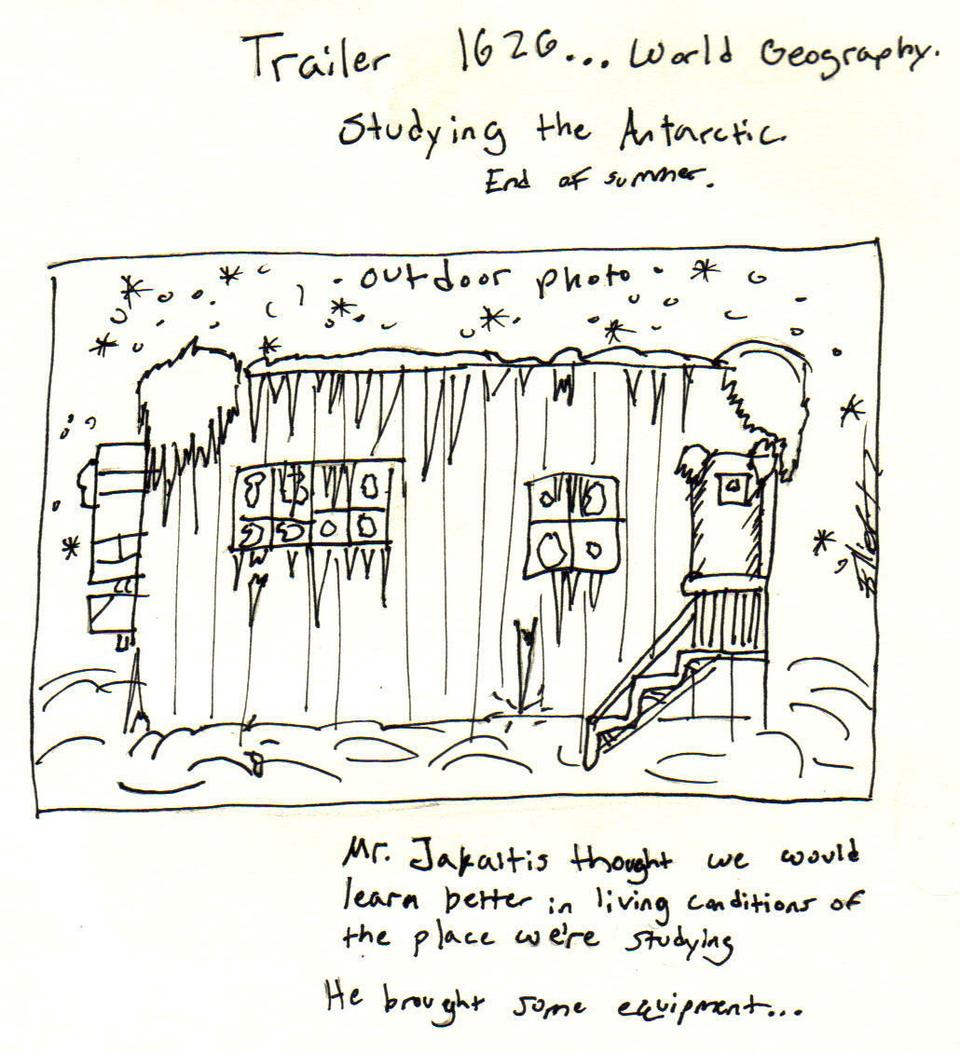 Trailer 1626... World Geography.
Studying the Antarctic.
End of summer.
outdoor photo
Elliott
Mr. Jakaitis thought we would
learn better in living conditions of
the place we're studying
He brought some equipment...